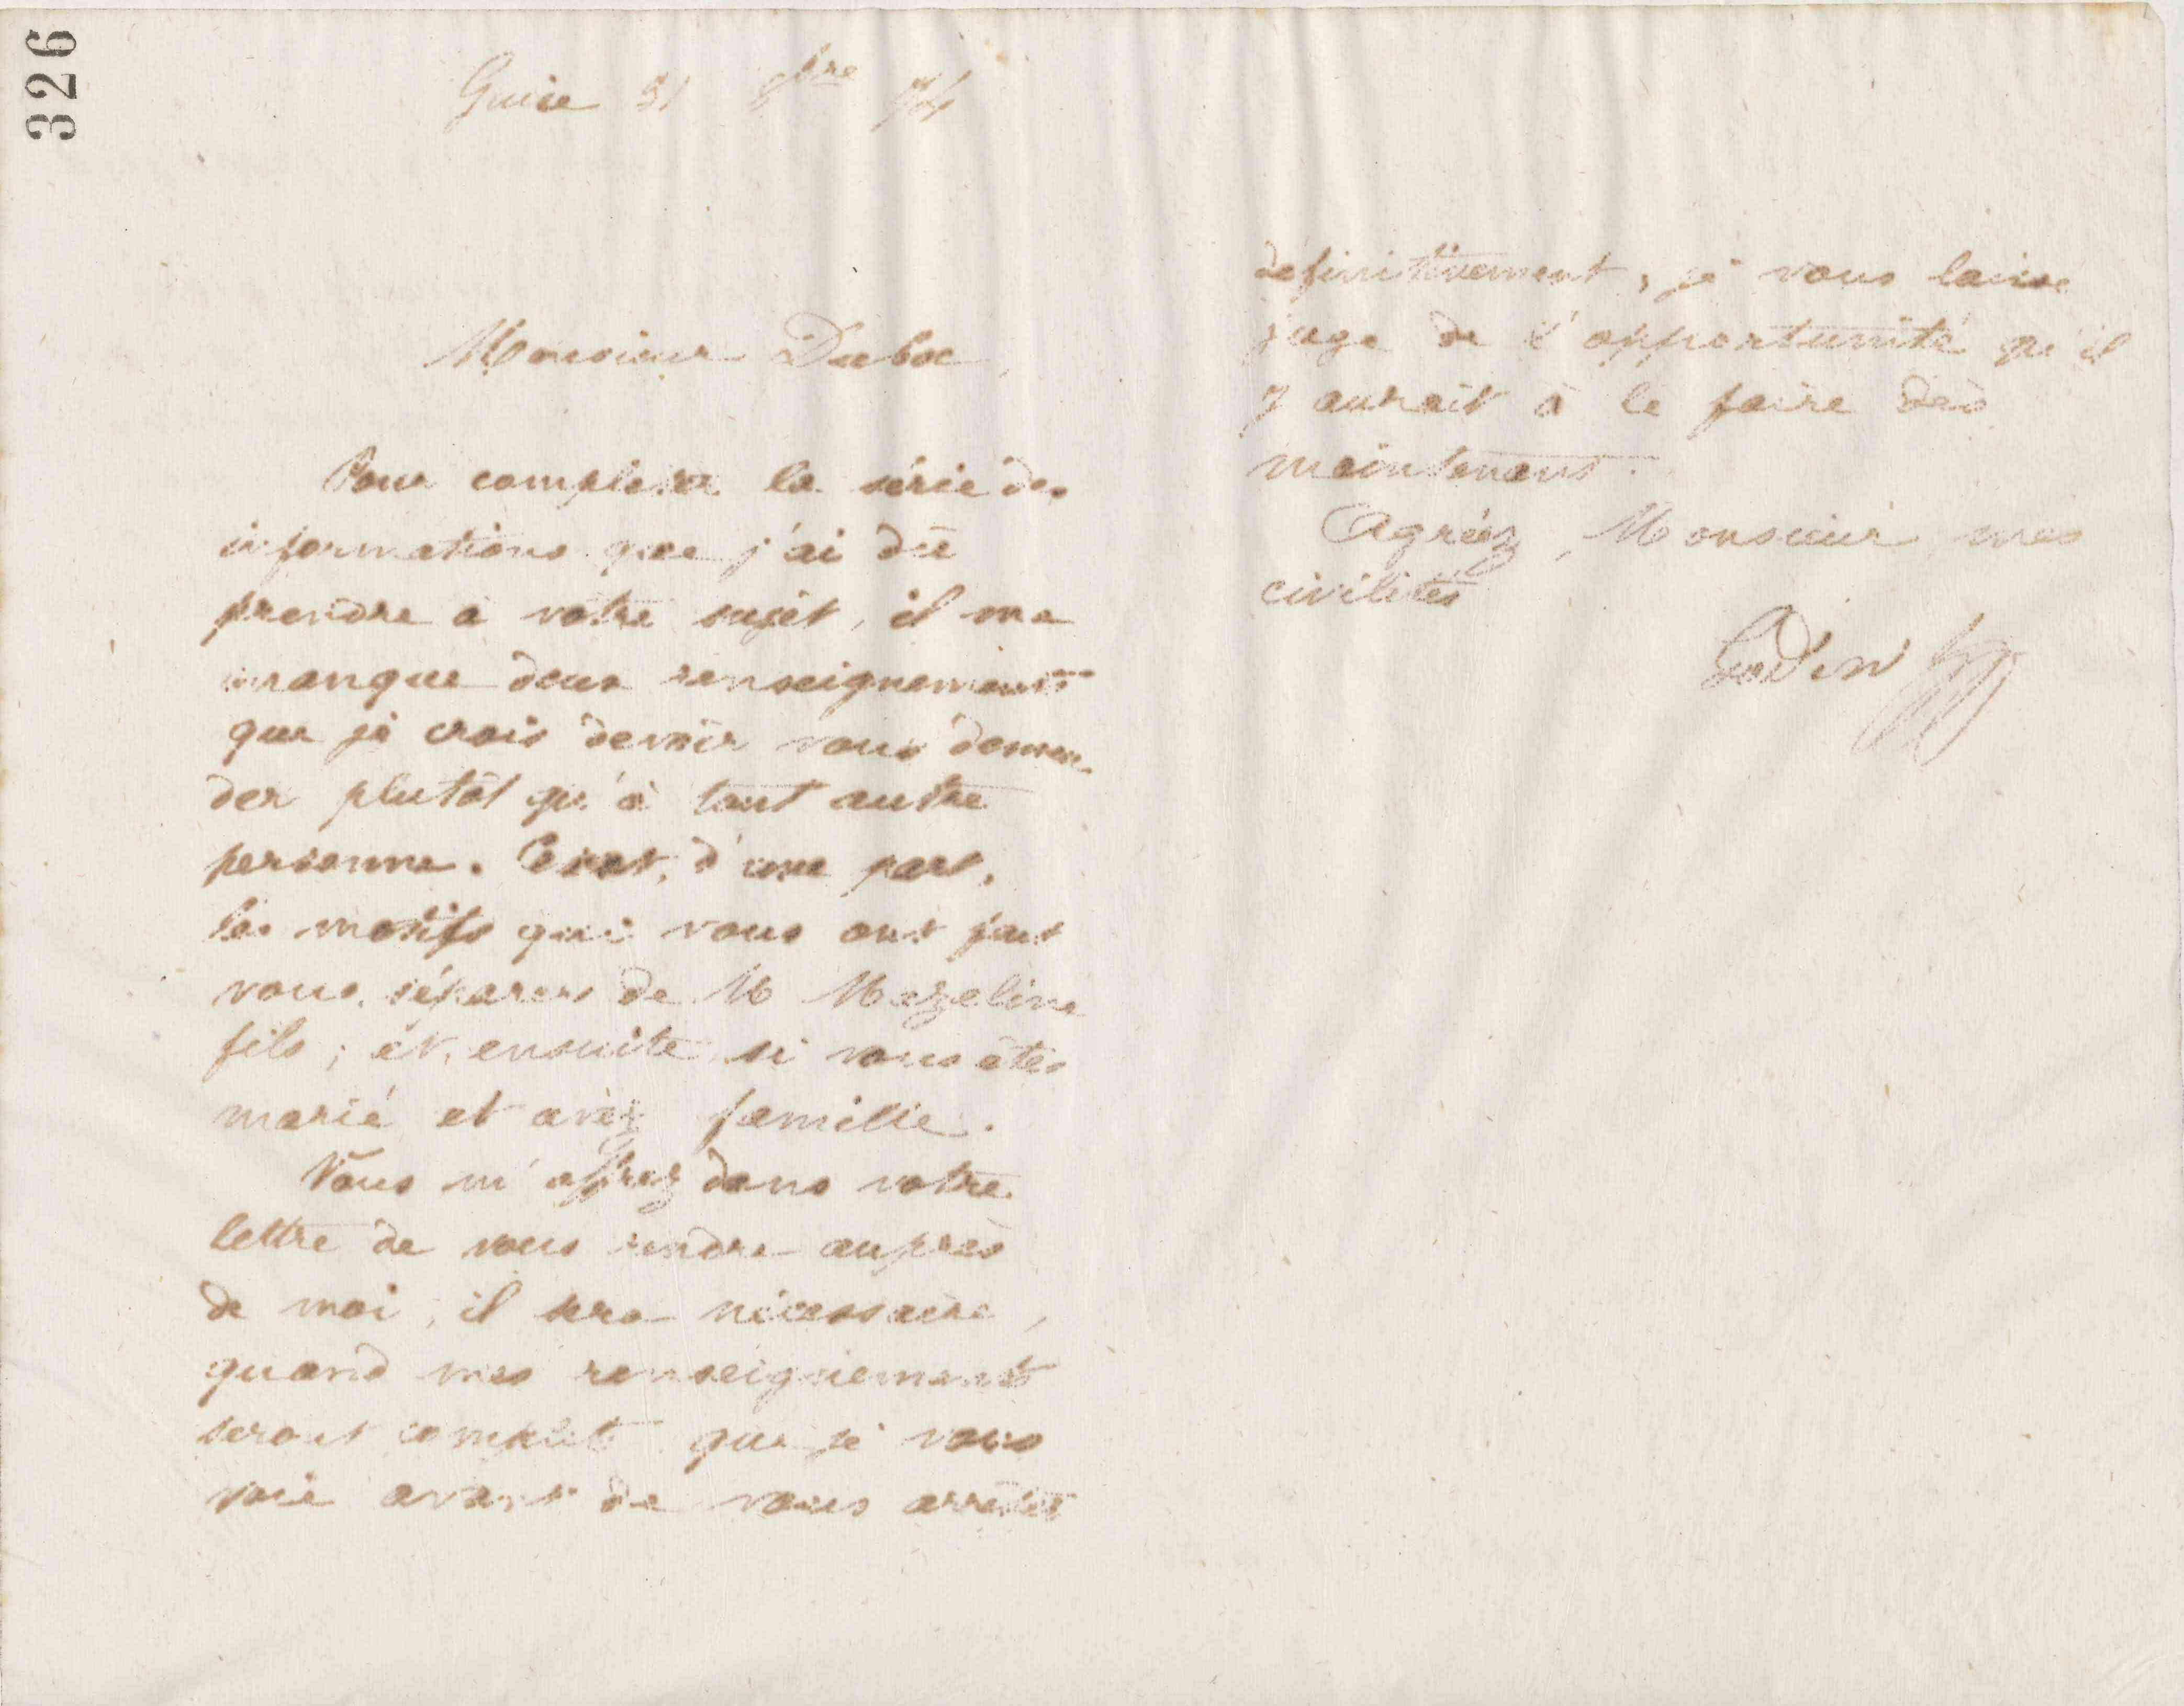 326
Guise 31 8bre 74
Monsieur Duboc,
Pour compléter la série des
informations que j'ai dû
prendre à votre sujet, il me
manque deux renseignements
que je crois devoir vous deman-
der plutôt qu'à tout autre
personne. C'est, d'une part,
les motifs qui vous ont fait
vous séparer de M Mazeline
fils ; et, ensuite si vous êtes
marié et avez famille.
Vous m'offrez dans votre
lettre de vous rendre auprès
de moi, il sera nécessaire,
quand mes renseignements
seront complets que je vous
voie avant de vous arrêter
définitivement, je vous laisse
juge de l'opportunité qu'il
y aurait à le faire dès
maintenant.
Agréez, Monsieur mes
civilités
Godin